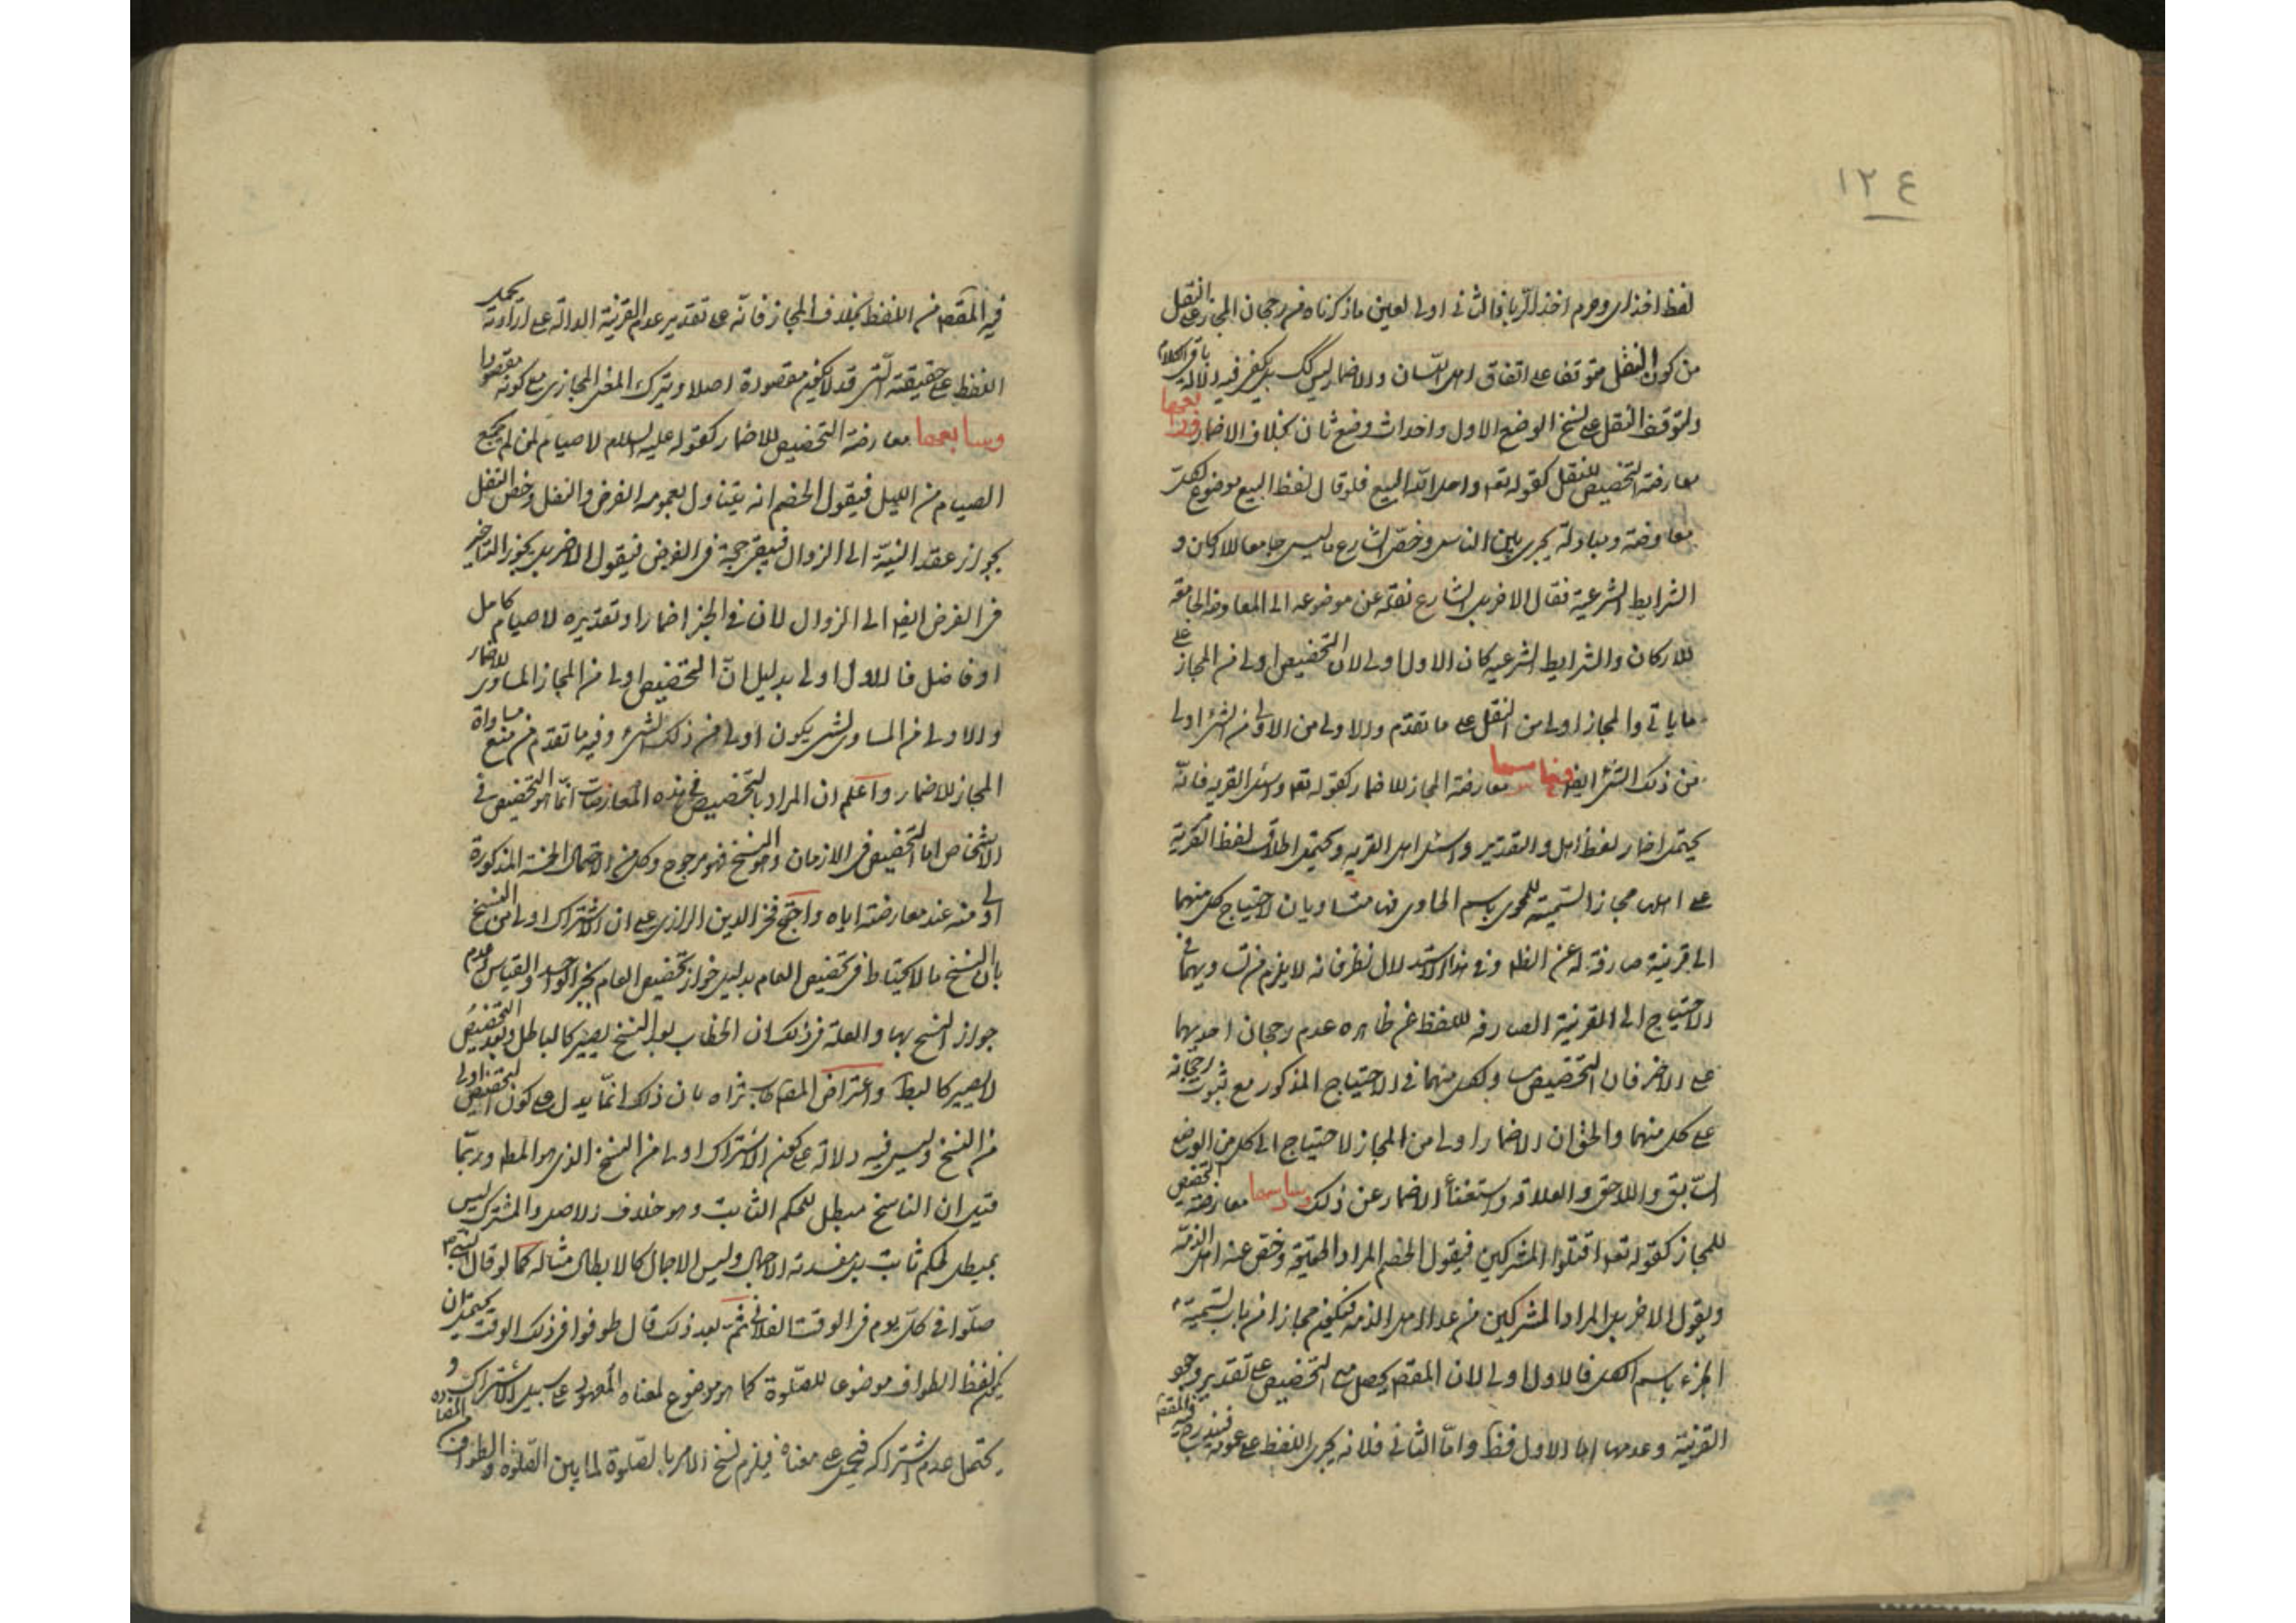 ١٢٤
لفظ اخذ اى وحرم اخذ الربا فالثانى اولى لعين ما ذكرناه من رجحان المجاز على النقل
من كون النقل متوقفا على اتفاق اهل اللسان والاضمار ليس كك بل يكفى فيه دلالة باقى الكلام
ولتوقف النقل على نسخ الوضع الاول واحداث وضع ثان بخلاف الاضمار ورابعها
معارضة التخصيص للنقل كقوله تعه واحل الله البيع فلو قال لفظ البيع موضوع لكل
معاوضة ومبادلة يجرى بين الناس وخص الشارع ما ليس جامعا للاركان و
الشرايط الشرعية فقال الاخر بل الشارع نقله عن موضوعه الى المعاوضة الجامعة
للاركان والشرايط الشرعية كان الاول اولى لان التخصيص اولى من المجاز على
ما ياتى والمجاز اولى من النقل على ما تقدم والاولى من الاولى من الشئ اولى
من ذلك الشئ ايضا وخامسها معارضة المجاز للاضمار كقوله تعه واسئل القرية فانه
يحتمل اضمار لفظ اهل والتقدير واسئل اهل القرية ويحتمل اطلاق لفظ القرية
على اهلها مجازا لتسمية المحوى باسم الحاوى فهما متساويان لاحتياج كل منهما
الى قرينة صارفة له عن الظه وفى هذا الاستدلال نظر فانه لا يلزم من تساويهما فى
الاحتياج الى القرينة الصارفة للفظ عن ظاهره عدم رجحان احديهما
على الاخر فان التخصيص مساو لكل منهما فى الاحتياج المذكور مع ثبوت رجحانه
على كل منهما والحق ان الاضمار اولى من المجاز لاحتياج الى كل من الوضع
السابق واللاحق والعلاقه واستغناء الاضمار عن ذلك وسادسها معارضة التخصيص
للمجاز كقوله تعه اقتلوا المشركين فيقول الخصم المراد الحقيقة وخص عنه اهل الذمة
ويقول الاخر بل المراد المشركين من عدا اهل الذمة فيكون مجازا من باب تسمية
الجزء باسم الكل فالاول اولى لان المقصد يحصل مع التخصيص على تقدير وجود
القرينة وعدمها اما الاول فظ واما الثانى فلانه يجرى اللفظ على عمومه فيندرج
فيه المقصد من اللفظ بخلاف المجاز فانه على تقدير عدم القرينة الدالة على ارادته يحمل
اللفظ على حقيقته التى قد لا تكون مقصودة اصلا ويترك المعنى المجازى مع كونه مقصودا
وسابعها معارضة التخصيص للاضمار كقوله عليه السلام لا صيام لمن لم يجمع
الصيام من الليل فيقول الخصم انه يتناول بعمومه الفرض والنفل وخص النفل
بجواز عقد النية الى الزوال فيبقى حجة فى الفرض فيقول الاخر بل يجوز التاخير
فى الفرض ايضا الى الزوال لان فى الخبر اضمارا وتقديره لا صيام كامل
او فاضل فالاول اولى بدليل ان التخصيص اولى من المجاز المساوى للاضمار
والاولى من المساوى لشئ يكون اولى من ذلك الشئ وفيه ما تقدم من منع مساواة
المجاز للاضمار واعلم ان المراد بالتخصيص فى هذه المعارضات انما هو التخصيص فى
الاشخاص اما التخصيص فى الازمان وهو النسخ فهو مرجوح وكل من الاحتمالات الخمسة المذكورة
اولى منه عند معارضته اياه واحتج فخر الدين الرازى على ان الاشتراك اولى من النسخ
بان النسخ ما لا يحتاط فى تخصيص العام بدليل جواز تخصيص العام بخبر الواحد والقياس وعدم
جواز النسخ بهما والعلة فى ذلك ان الخطاب بعد النسخ يصير كالباطل وبعد التخصيص
لا يصير كالبط واعترض المصه طاب ثراه بان ذلك انما يدل على كون التخصيص اولى
من النسخ وليس فيه دلالة على كون الاشتراك اولى من النسخ الذى هو المط وربما
قيل ان الناسخ مبطل للحكم الثابت وهو خلاف الاصل والمشترك ليس
بمبطل لحكم ثابت بل مفسدته الاجمال وليس الاجمال كالابطال مثاله كما لو قال الشارع
صلوا فى كل يوم فى الوقت الفلانى ثم بعد ذلك قال طوفوا فى ذلك الوقت يحتمل ان
يكون لفظ الطواف موضوعا للصلوة كما هو موضوع لمعناه المعهود على سبيل الاشتراك و
يحتمل عدم اشتراكه فيحمل على معناه فيلزم نسخ الامر بالصلوة لما بين الصلوة والطواف من المضاده